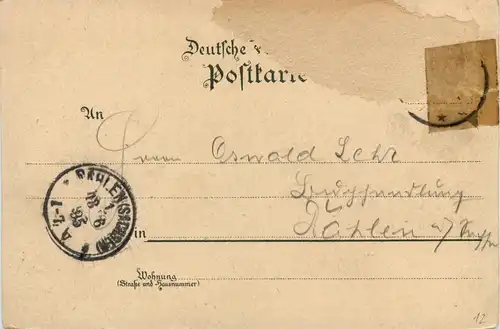 Deutsche
Postkarte
An
Herrn Oswald Lehr
Buchhandlung
in Dahlen a/
DAHLEN (SACHSEN)
Wohnung
(Straße und Hausnummer)
12